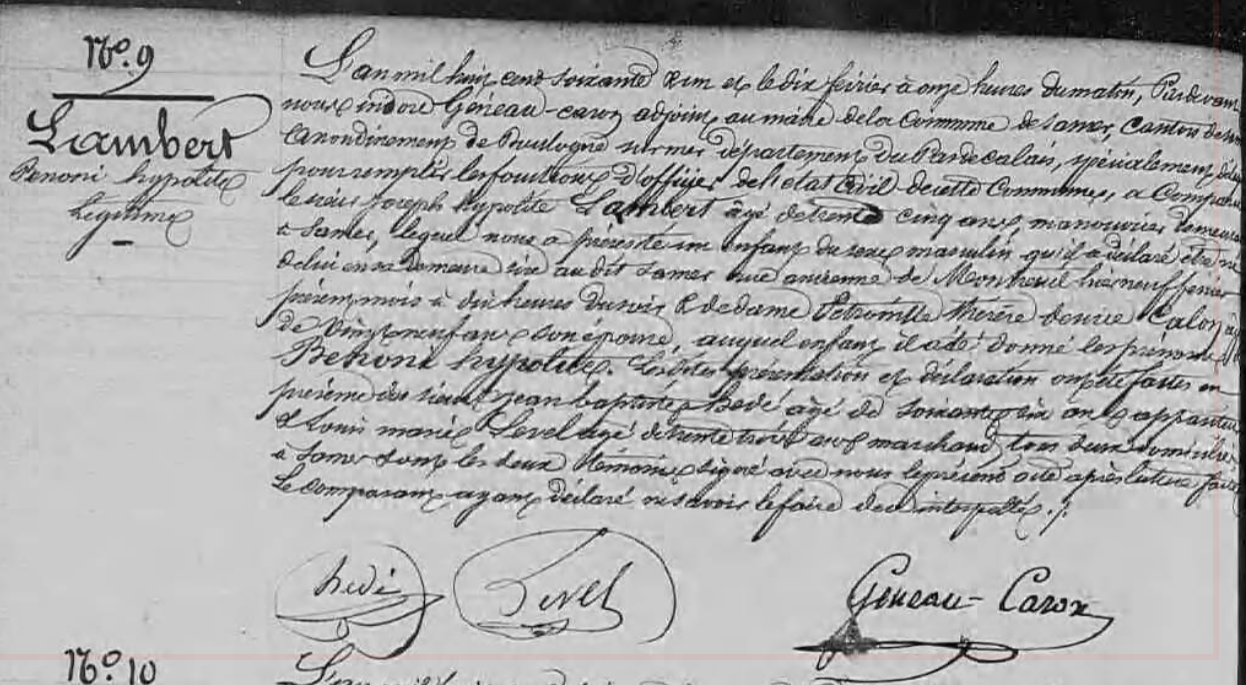 No. 9
Lambert
Benoni hypolite
Légitime
L'an mil huit cent soixante et le dix février à onze heures du matin, Pardevant
nous isidore Géneau-caron adjoint au maire de la Commune de Samer, canton de
arrondissement de Boulogne sur mer département du Pas de calais, spécialement
pour remplir les fonctions d'officier de l'état Civil de cette Commune, a Comparu
le sieur Joseph hypolite Lambert âgé de trente cinq ans, manouvrier demeurant
à Samer, lequel nous a présenté un enfant du sexe masculin qu'il a déclaré être né
de lui en sa demeure sise au dit Samer rue ancienne de Montreuil hier neuf février
présent mois à dix heures du soir & de dame Pétronille thérèse Calon
de vingt neuf ans son épouse, auquel enfant il a été donné les prénoms
Benoni hypolite. Lesdites présentation et déclaration ont été faites en
présence des sieurs jean baptiste hédé âgé de soixante dix ans appariteur
& Louis marie Level âgé de trente trois ans marchand, tous deux domiciliés
à Samer dont les deux témoins signé avec nous le présent acte après lecture faite
Le comparant ayant déclaré ne savoir le faire de ce interpellé ./.
hédé
Level
Géneau-Caron
No. 10
L'an mil